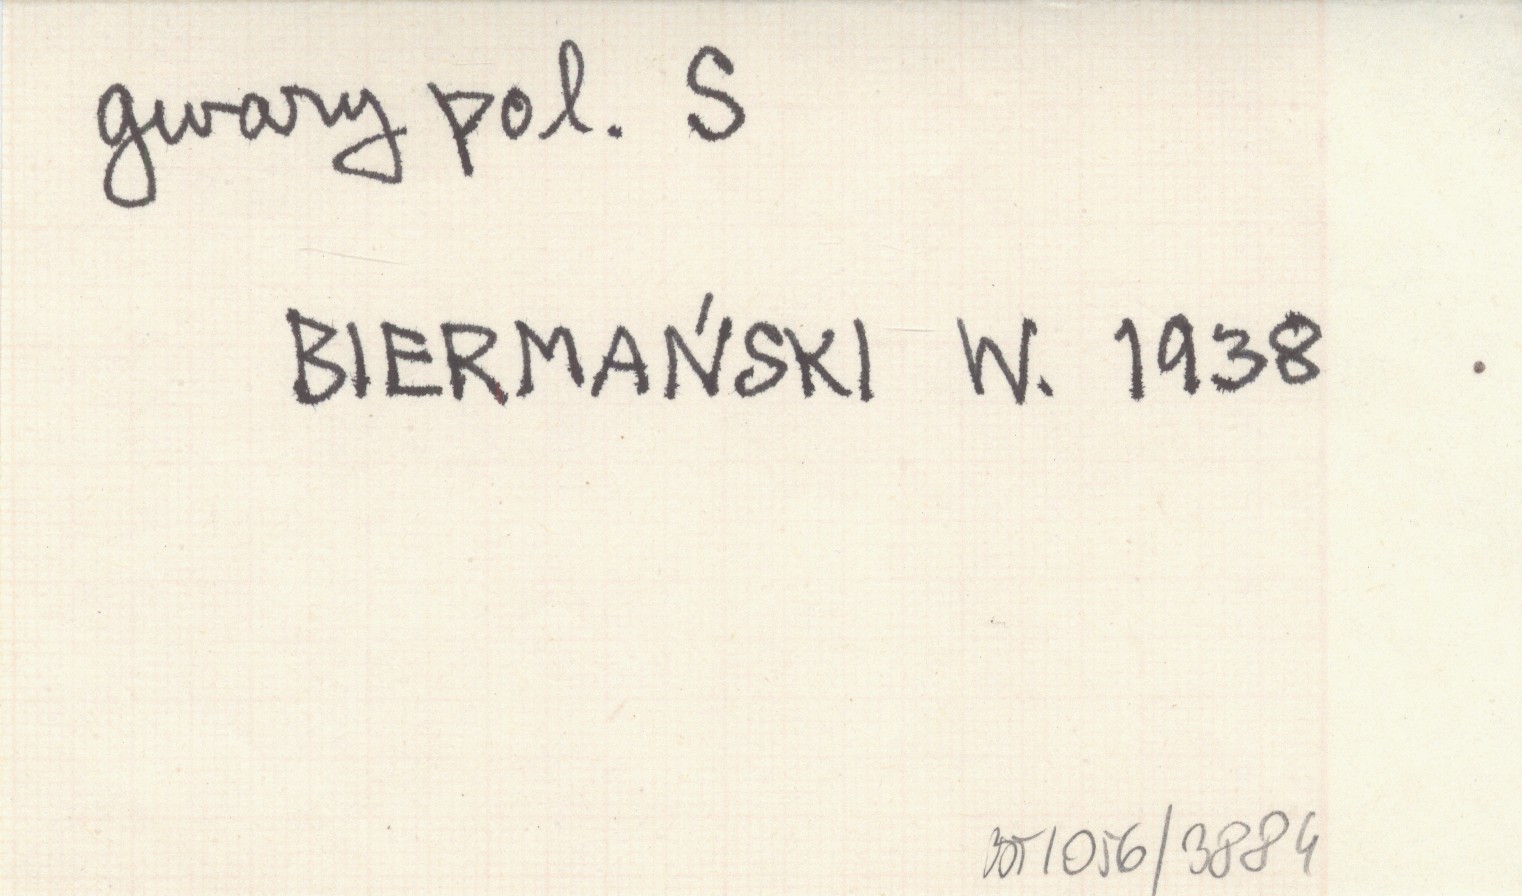 gwary pol. S
BIERMAŃSKI W. 1938
BOT1056/3884